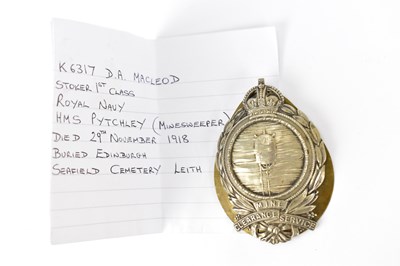 K6317 D.A. MACLEOD
STOKER 1ST CLASS
ROYAL NAVY
HMS PYTCHLEY (MINESWEEPER)
DIED 29TH NOVEMBER 1918
BURIED EDINBURGH
SEAFIELD CEMETERY LEITH
MINE
CLEARANCE SERVICE